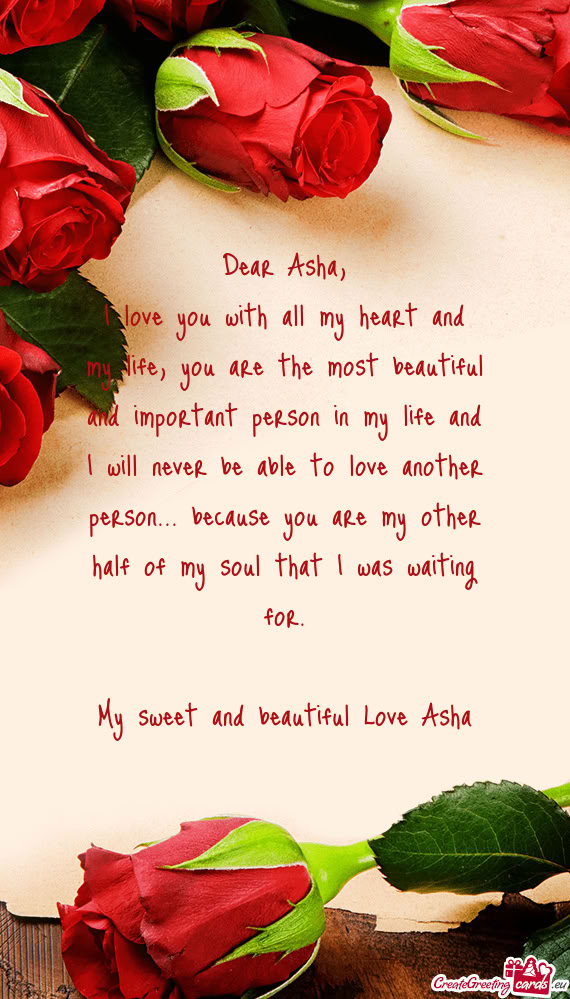 Dear Asha,
I love you with all my heart and
my life, you are the most beautiful
and important person in my life and
I will never be able to love another
person... because you are my other
half of my soul that I was waiting
for.
My sweet and beautiful Love Asha
CreateGreetingcards.eu